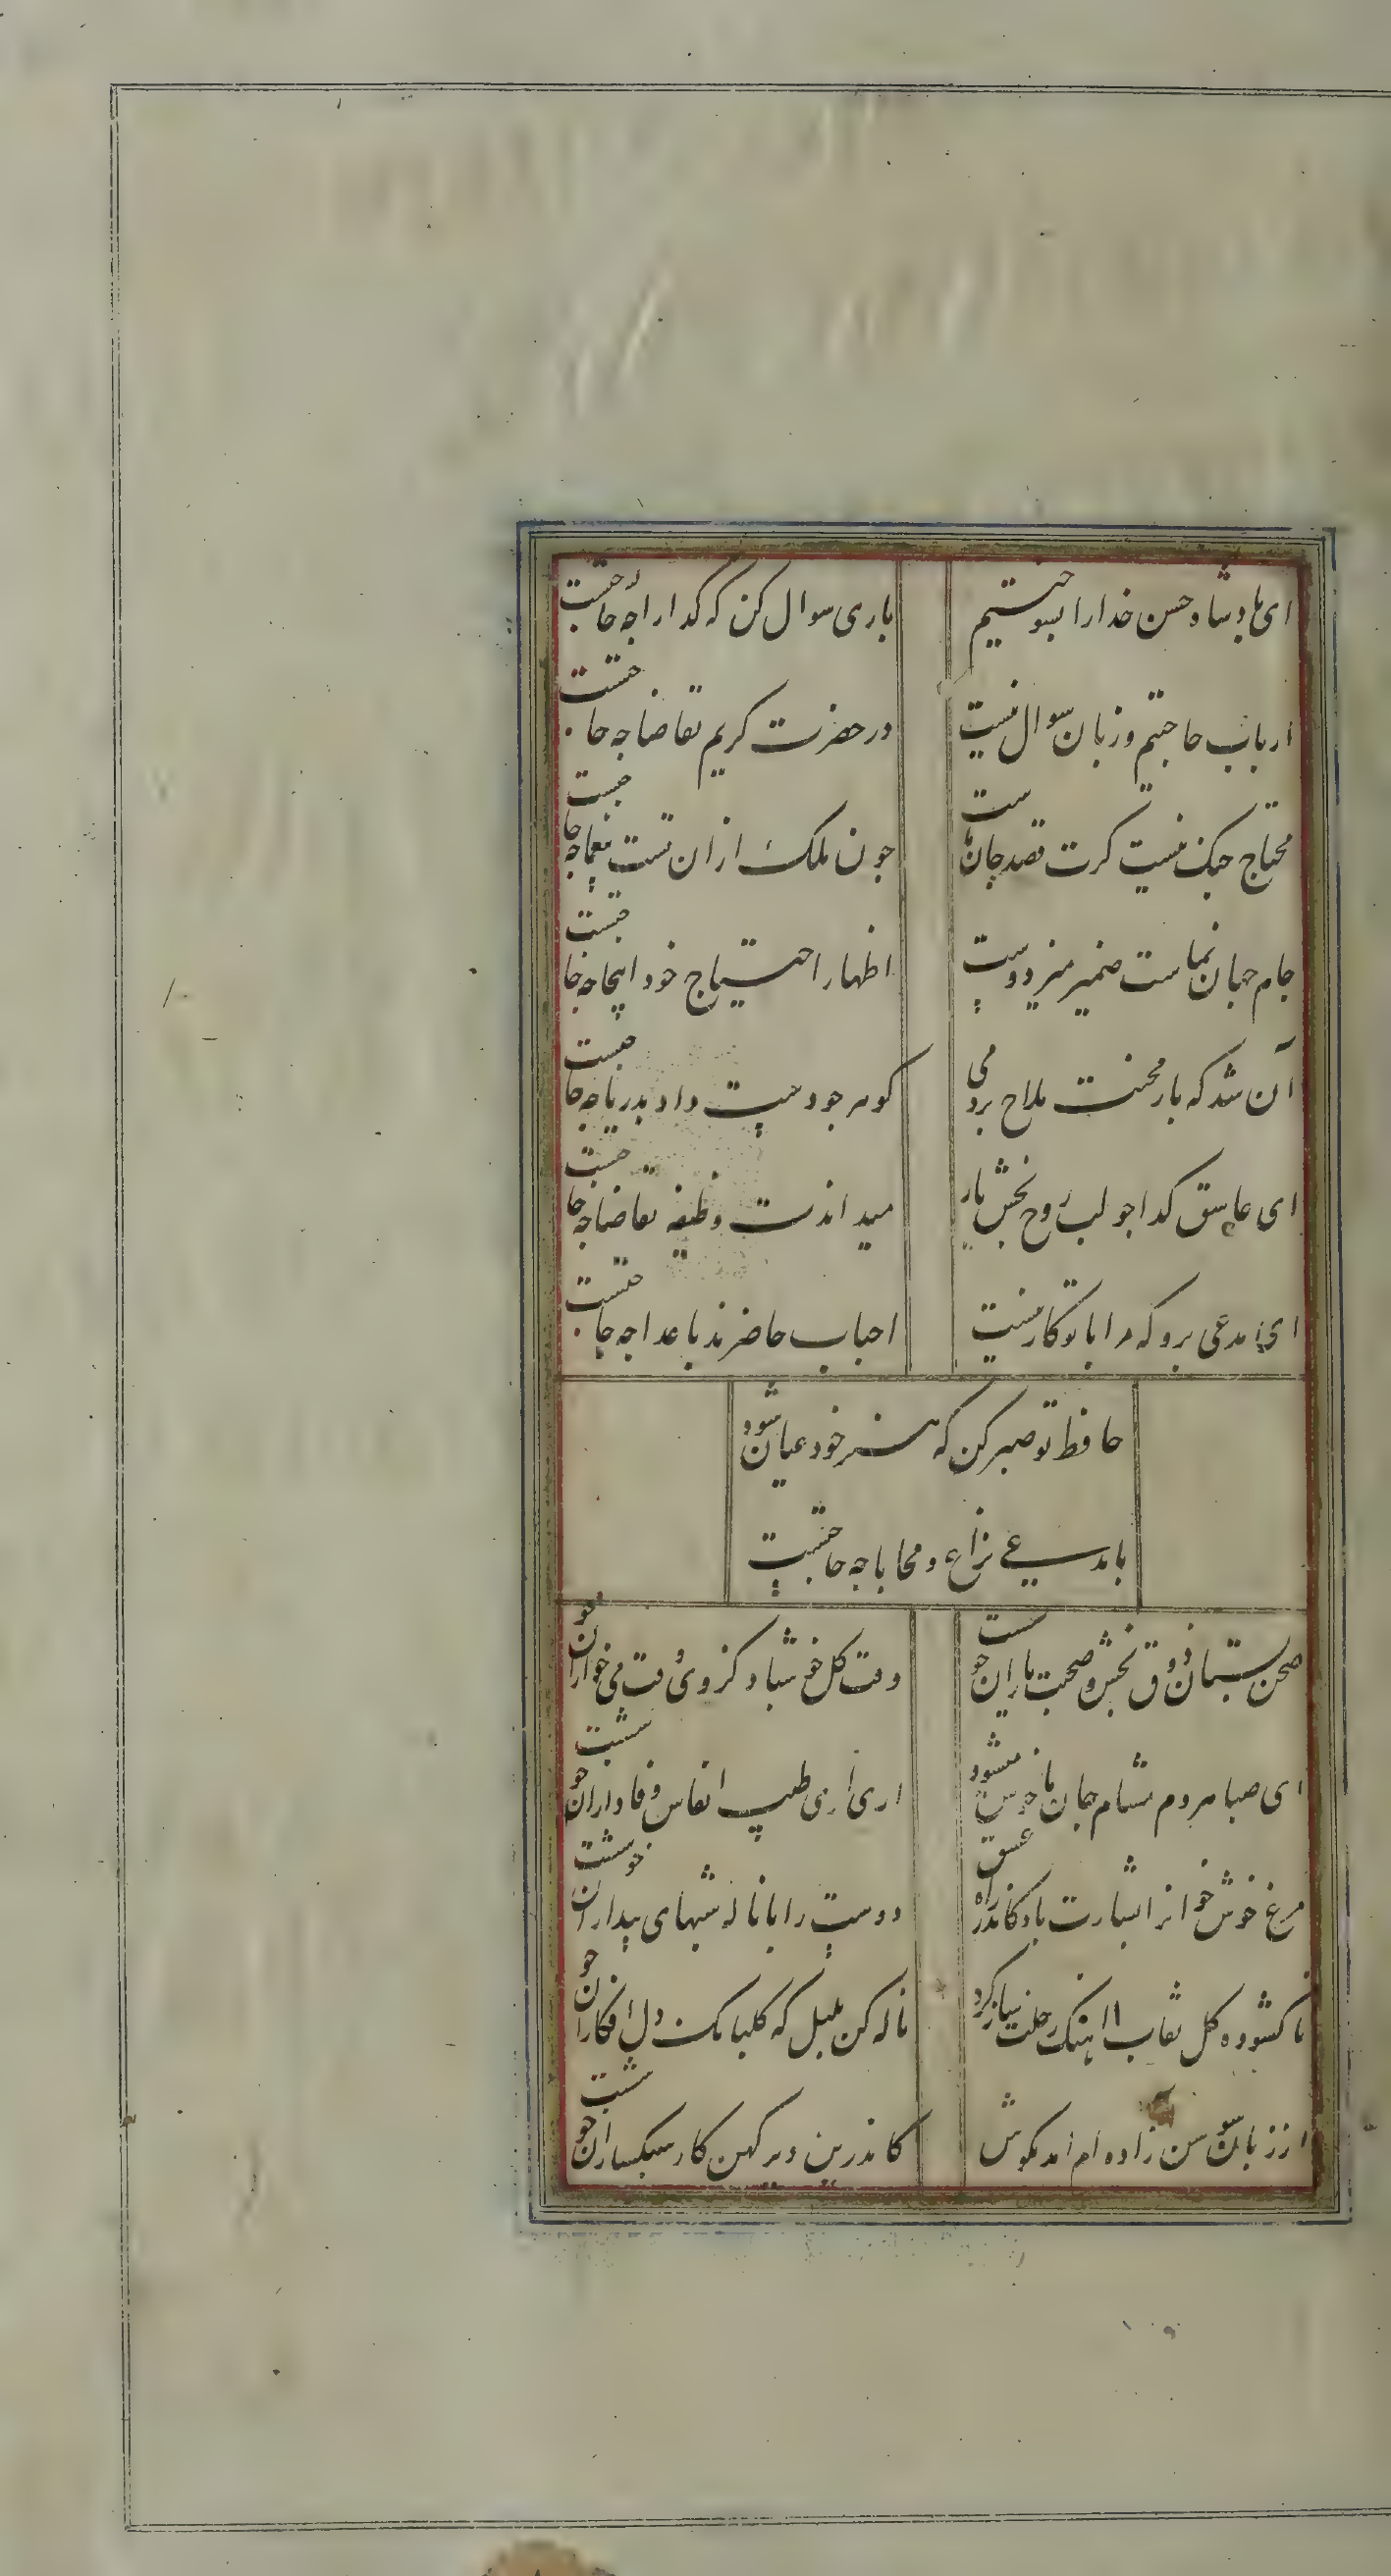 ای پادشاه حسن خدارا بسوختیم
باری سوال کن که کدارا چه حاجتست
ارباب حاجتیم و زبان سوال نیست
در حضرت کریم تقاضا چه حاجتست
محتاج جنک نیست کرت قصد جان ماست
چون ملک ازان تست یغما چه حاجتست
جام جهان نماست ضمیر منیر دوست
اظهار احتیاج خود انجا چه حاجتست
آن شد که بار محنت ملاح بردمی
کوهر چو دست داد بدریا چه حاجتست
ای عاشق کدا چو لب روح بخش یار
میداندت وظیفه تقاضا چه حاجتست
ای مدعی برو که مرا با تو کار نیست
احباب حاضرند باعدا چه حاجتست
حافظ تو صبر کن که هنر خود عیان شود
با مدعی نزاع و محابا چه حاجتست
صحن بستان ذوق بخش و صحبت یاران خوست
وقت کل خوش باد کز وی وقت می خواران خو
ای صبا هردم مشام جان ما خوش میشود
اری اری طیب انفاس وفاداران خوشست
مرغ خوش خوانرا بشارت باد کاندر راه عشق
دوست را با ناله شبهای بیداران خوشست
ناکشوده کل نقاب اهنک رحلت ساز کرد
ناله کن بلبل که کلبانک دل افکاران خو
از زبان سوسن زاده ام امد بکوش
کاندرین دیر کهن کار سبکساران خوشست